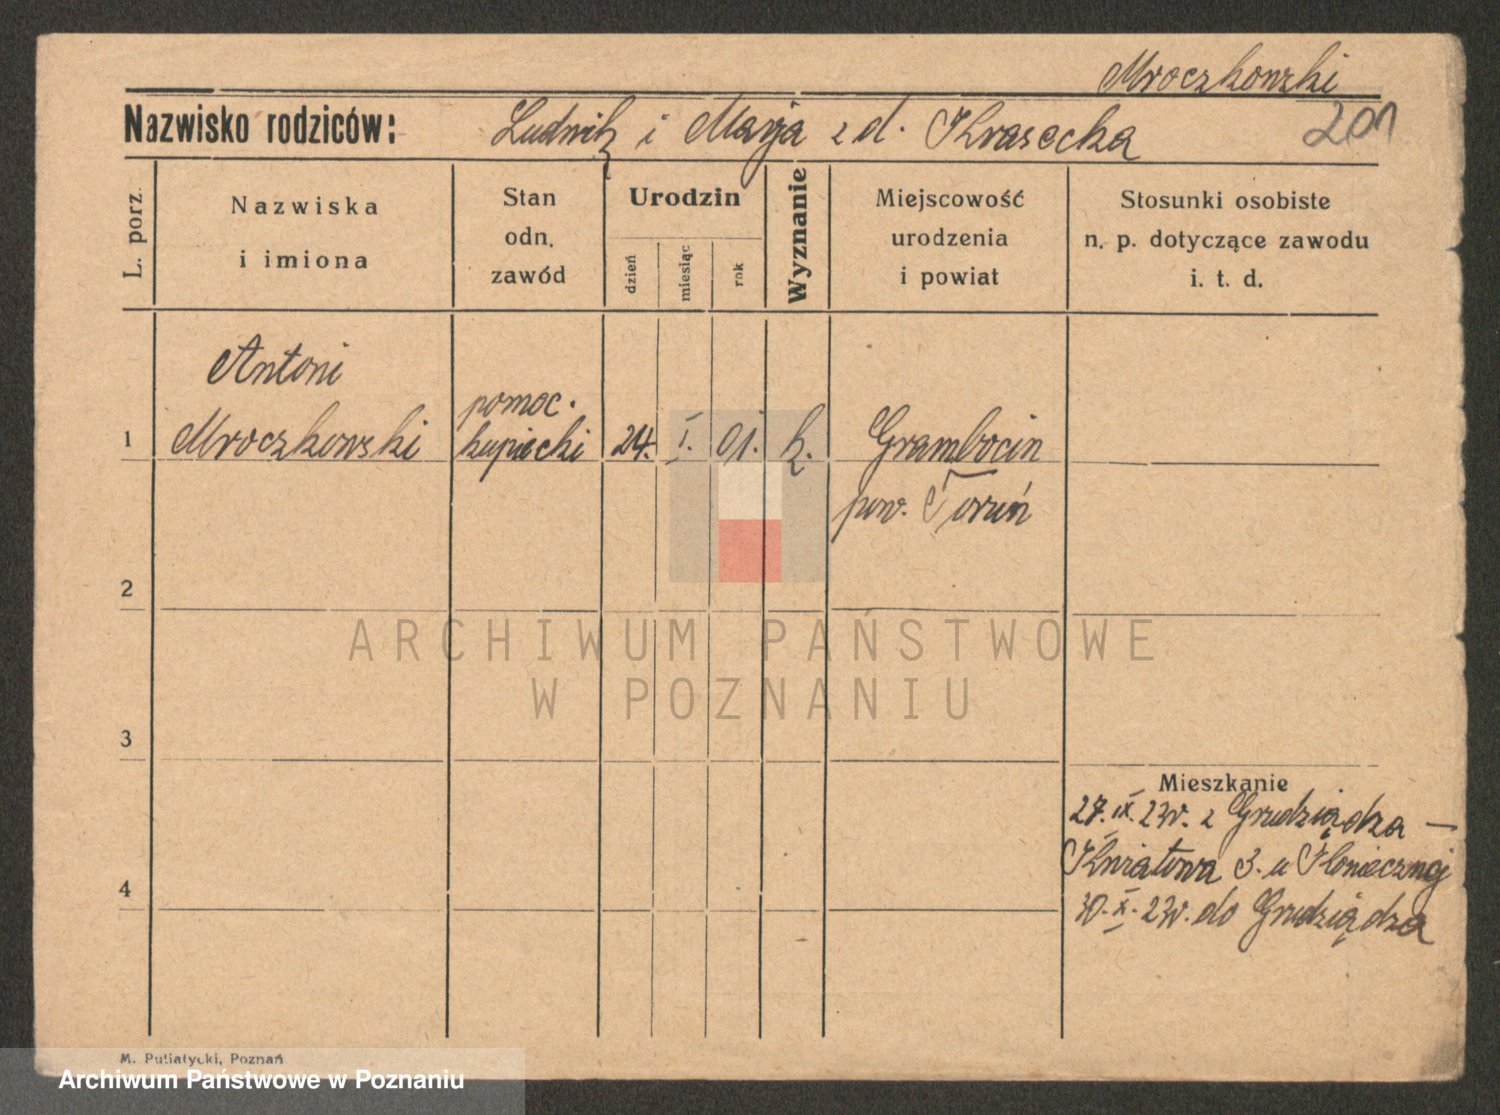 Mroczkowski
Nazwisko rodziców: Ludwik i Marja z d. Krasecka 201
L. porz.
Nazwiska
i imiona
Stan
odn.
zawód
Urodzin
dzień
miesiąc
rok
Wyznanie
Miejscowość
urodzenia
i powiat
Stosunki osobiste
n. p. dotyczące zawodu
i. t. d.
Antoni
pomoc.
1 Mroczkowski kupiecki 24. I. 01. k. Grambocin
pow. Toruń
2
ARCHIWUM PAŃSTWOWE
W POZNANIU
3
Mieszkanie
27. IX. 23r. z Grudziądza —
Kwiatowa 3. u Słonecznej
4
30. X. 23r. do Grudziądza
M. Putiatycki, Poznań
Archiwum Państwowe w Poznaniu